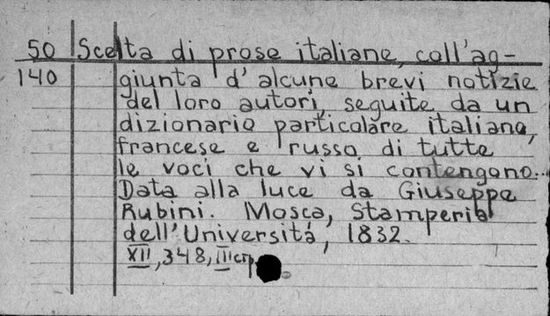 50 Scelta di prose italiane, coll'ag-
140 giunta d'alcune brevi notizie
del loro autori, seguite da un
dizionario particolare italiano,
francese e russo di tutte
le voci che vi si contengono..
Data alla luce da Giuseppe
Rubini. Mosca, Stamperia
dell'Universitá, 1832.
XII, 348, III стр.